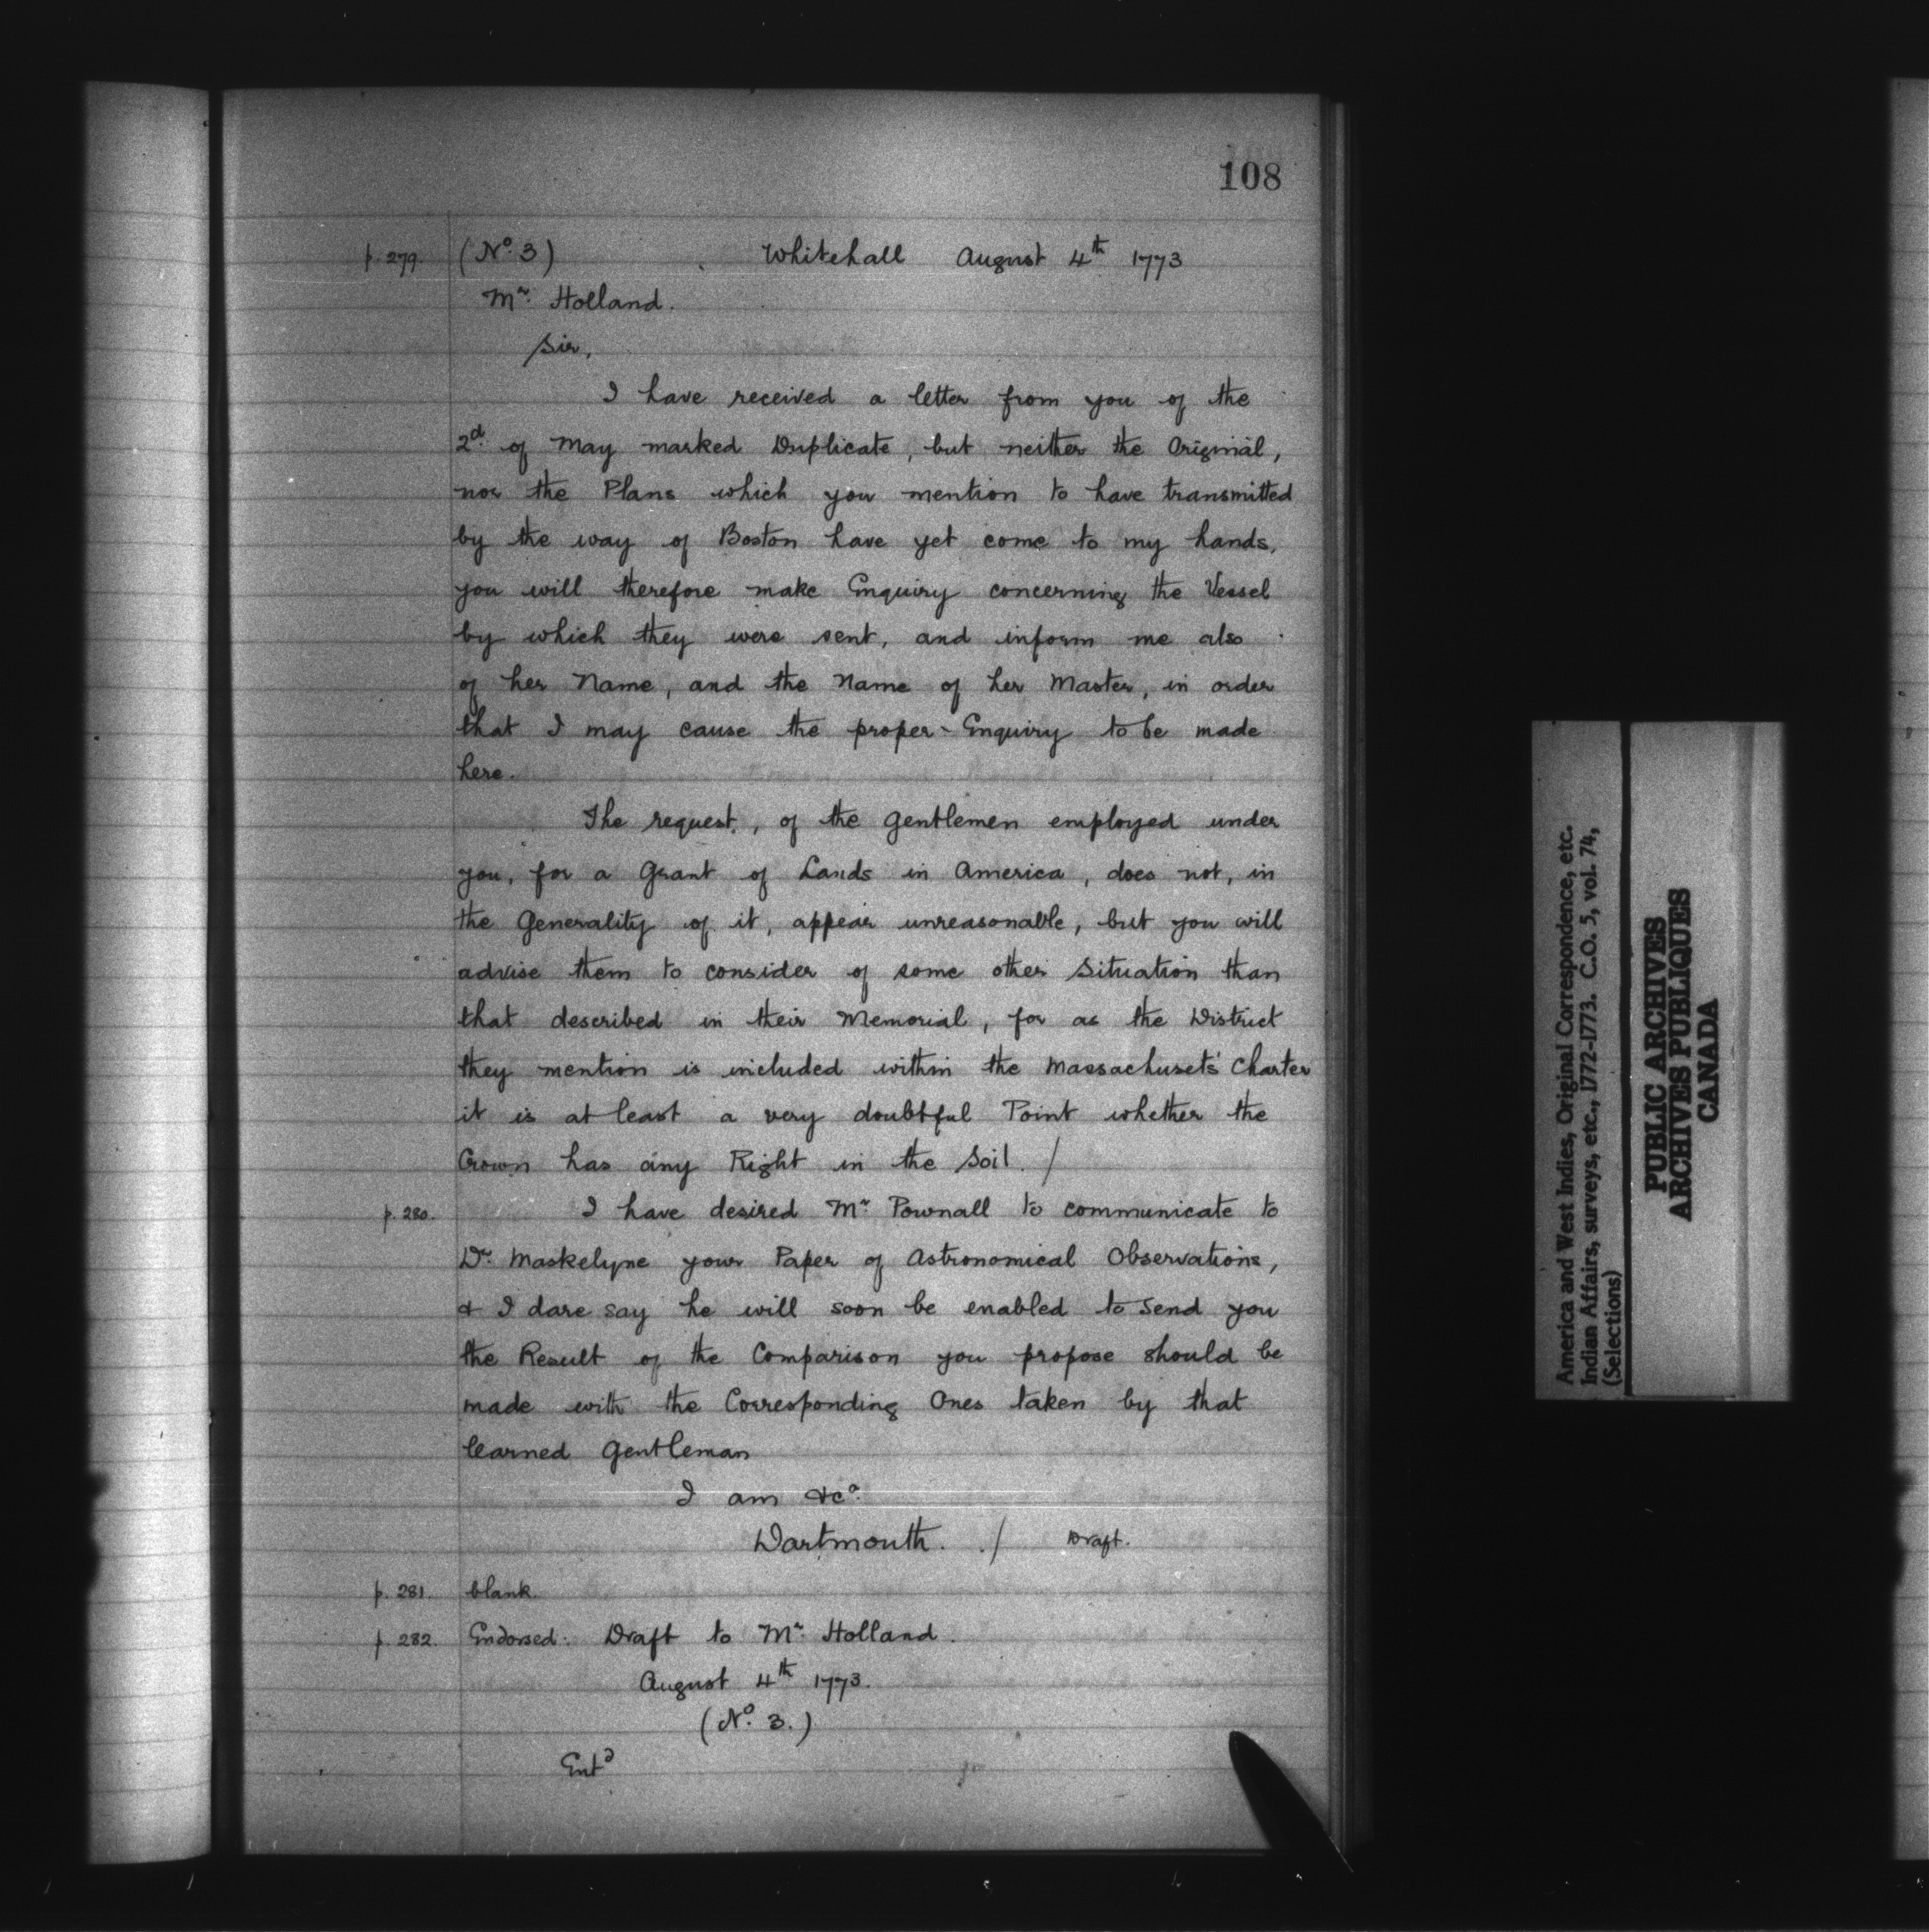 108
p. 279. (No. 3) Whitehall August 4th 1773
Mr. Holland.
Sir,
I have received a letter from you of the
2d. of May marked Duplicate, but neither the Original,
nor the Plans which you mention to have transmitted
by the way of Boston have yet come to my hands,
you will therefore make Enquiry concerning the Vessel
by which they were sent, and inform me also
of her Name, and the Name of her Master, in order
that I may cause the proper Enquiry to be made
here.
The request, of the Gentlemen employed under
you, for a Grant of Lands in America, does not, in
the Generality of it, appear unreasonable, but you will
advise them to consider of some other Situation than
that described in their Memorial, for as the District
they mention is included within the Massachusets' Charter
it is at least a very doubtful Point whether the
Crown has any Right in the Soil. /
p. 280. I have desired Mr Pownall to communicate to
Dr. Maskelyne your Paper of Astronomical Observations,
& I dare say he will soon be enabled to send you
the Result of the Comparison you propose should be
made with the Corresponding Ones taken by that
learned Gentleman
I am &ca.
Dartmouth. ./ Draft.
p. 281. blank
p. 282. Endorsed: Draft to Mr. Holland.
August 4th 1773.
(No. 3.)
Entd
America and West Indies, Original Correspondence, etc.
Indian Affairs, surveys, etc., 1772-1773. C.O. 5, vol. 74,
(Selections)
PUBLIC ARCHIVES
ARCHIVES PUBLIQUES
CANADA